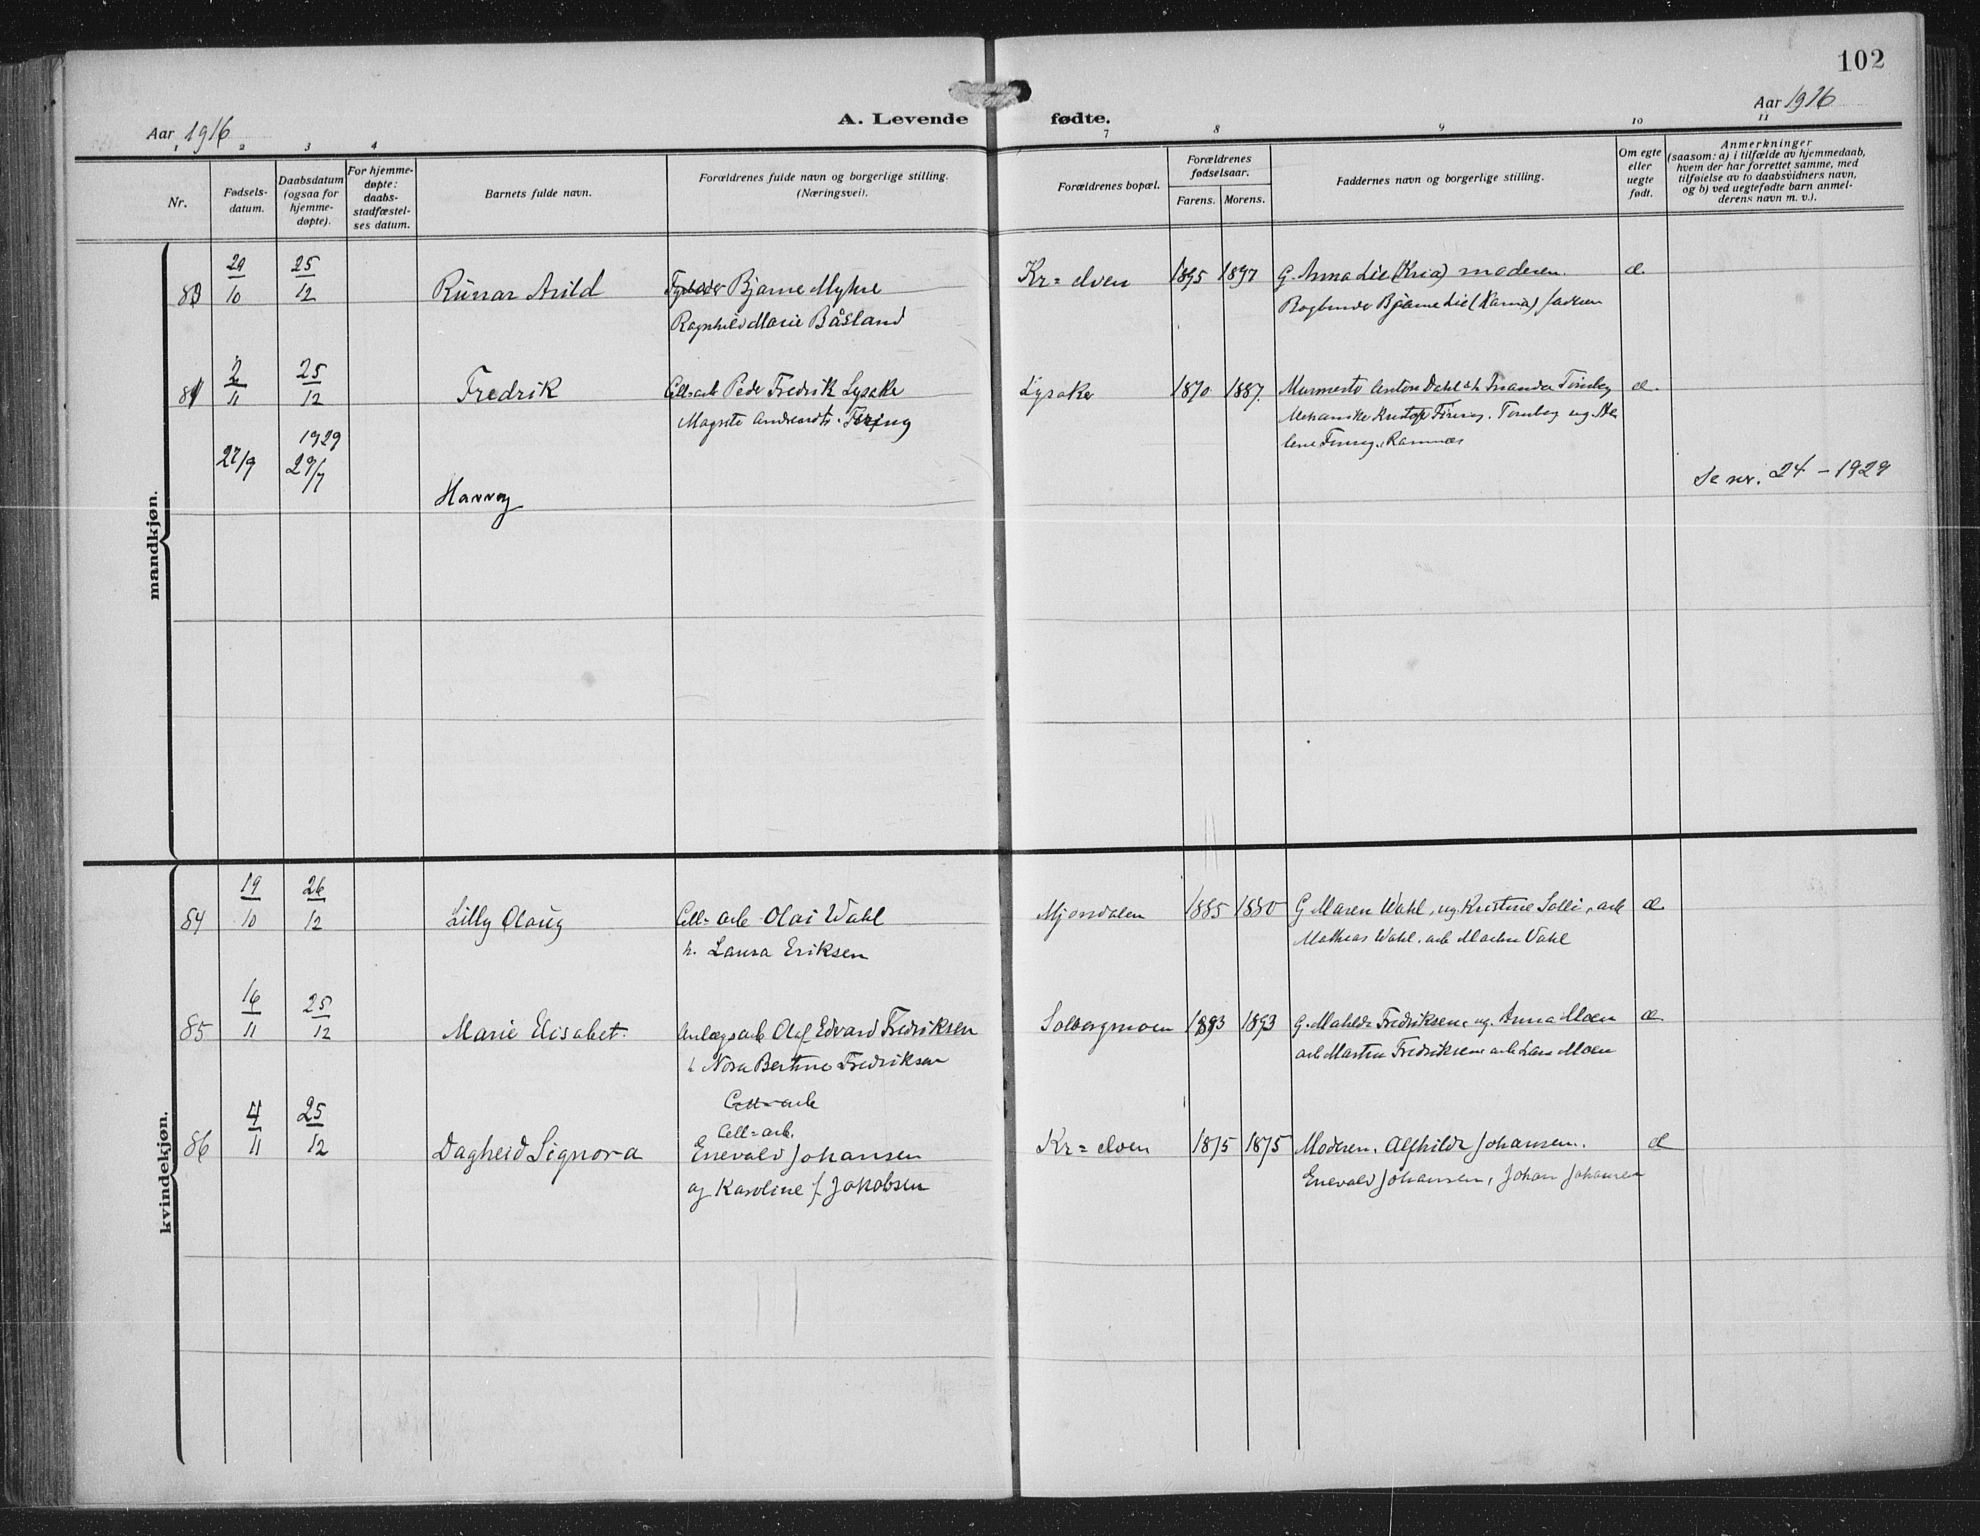 102
Aar 1916
A. Levende fødte.
Aar 1916
1 2 3 4 7 8 9 10 11
Nr.
Fødsels-
datum.
Daabsdatum
(ogsaa for
hjemme-
døpte).
For hjemme-
døpte:
daabs-
stadfæstel-
ses datum.
Barnets fulde navn.
Forældrenes fulde navn og borgerlige stilling.
(Næringsvei).
Forældrenes bopæl.
Forældrenes
fødselsaar.
Farens. Morens.
Faddernes navn og borgerlige stilling.
Om egte
eller
uegte
født.
Anmerkninger
(saasom: a) i tilfælde av hjemmedaab,
hvem der har forrettet samme, med
tilføielse av to daabsvidners navn,
og b) ved uegtefødte barn anmel-
derens navn m. v.).
mandkjøn.
83 29/10 25/12 Runar Arild Bjarne Myhre Kr=elven 1895 1897 G. Anna Lie (Kria) moderen. æ
Ragnhild Marie Båsland Bjarne Lie faderen
2/11 25/12 Fredrik Cell=arb Peder Fredrik Lysaker Lysaker 1870 1887. Anton Dahl æ
Magnte
27/9 1929 29/7 Harry Se nr. 24 - 1929
kvindekjøn.
84 19/10 26/12 Lilly Olaug Cell=arb Olai Wahl Mjøndalen 1885 1880 G Maren Wahl, ug. Kristine Solli, arb æ
h. Laura Eriksen Mathias Wahl. arb Vahl
85 16/11 25/12 Marie Elisabet. Anlægsarb Olaf Edvard Fredriksen Solbergmoen 1893 1893 G. Mahilde Fredriksen, ug. Anna Moen æ
h Nora Bertine Fredriksen arb Martin Fredriksen arb Lars Moen
Cell=arb
Cell=arb.
86 4/11 25/12 Dagheid Signora Enevald Johansen Kr=elven 1875 1875 Moderen. Alfhilde Johansen. æ
og Karoline f. Jakobsen Enevald Johansen, Johan Johansen